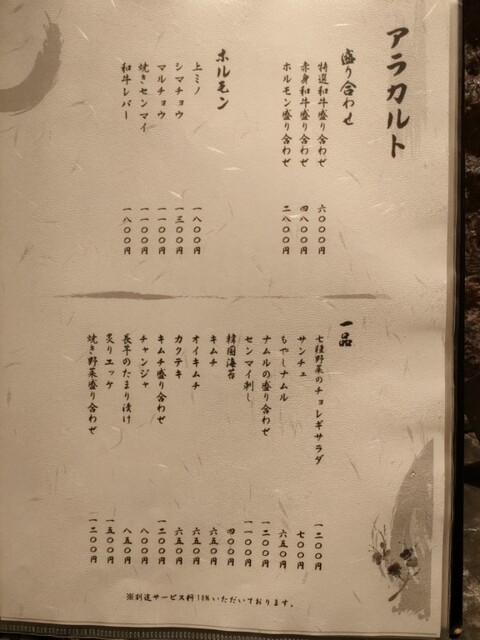 アラカルト
盛り合わせ
特選和牛盛り合わせ 六〇〇〇円
赤身和牛盛り合わせ 四八〇〇円
ホルモン盛り合わせ 二八〇〇円
ホルモン
上ミノ 一八〇〇円
シマチョウ 一三〇〇円
マルチョウ 一一〇〇円
焼きセンマイ 一一〇〇円
和牛レバー 一八〇〇円
一品
七種野菜のチョレギサラダ 一二〇〇円
サンチュ 七〇〇円
もやしナムル 六五〇円
ナムルの盛り合わせ 一二〇〇円
センマイ刺し 一一〇〇円
韓国海苔 四〇〇円
キムチ 六五〇円
オイキムチ 六五〇円
カクテキ 六五〇円
キムチ盛り合わせ 一二〇〇円
チャンジャ 八〇〇円
長芋のたまり漬け 八五〇円
炙りユッケ 一五〇〇円
焼き野菜盛り合わせ 一二〇〇円
※別途サービス料10%いただいております。